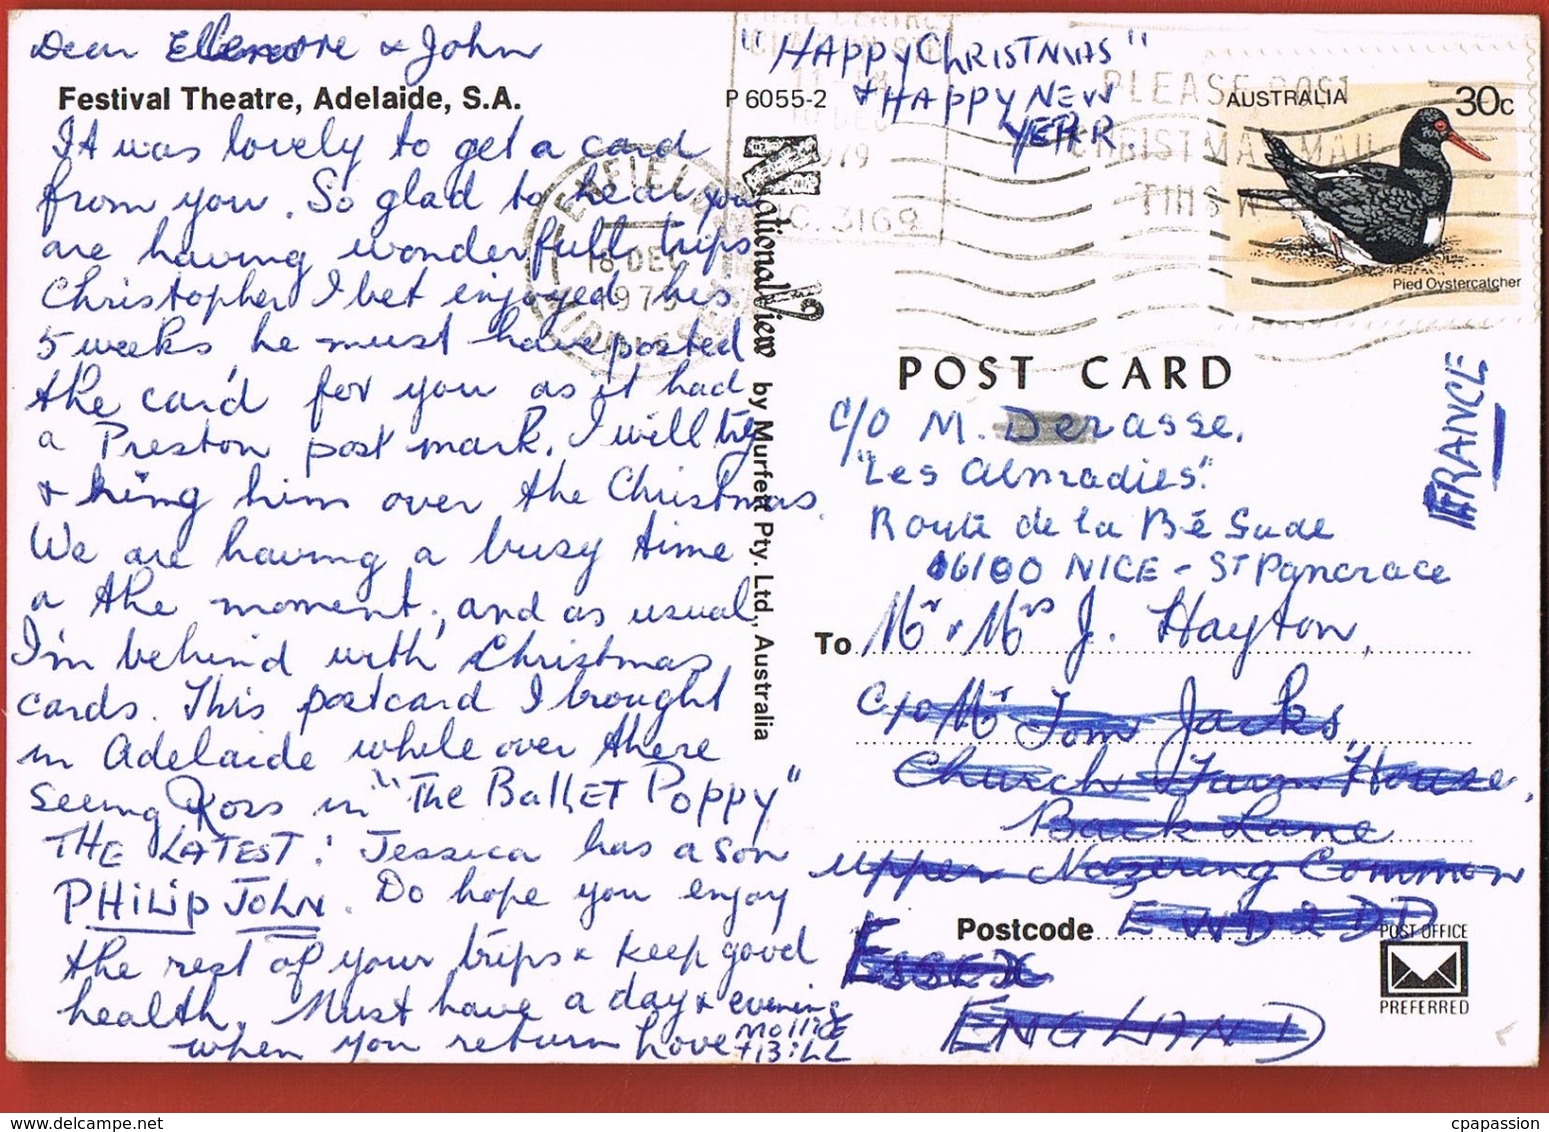 Dear Ellenore & John
Festival Theatre, Adelaide, S.A.
It was lovely to get a card
from you. So glad to hear you
are having wonderfull trips
Christopher I bet enjoyed his
5 weeks he must have posted
the card for you as it had
a Preston post mark. I will try
& ring him over the Christmas.
We are having a busy time
a the moment, and as usual
I'm behind with Christmas
cards. This postcard I brought
in Adelaide while over there
seeing Ross in "The BaLLET Poppy"
THE LATEST: Jessica has a son
PHILIP JOHN. Do hope you enjoy
the rest of your trips & keep good
health. Must have a day & evening
when you return Love MOLLIE
+ BILL
P 6055-2
"HAPPY CHRISTMAS"
& HAPPY NEW
YEAR.
National View by Murfett Pty. Ltd., Australia
ENFIELD
18 DEC
1979
MIDDLESEX
10 DEC
1979
3169
PLEASE POST
CHRISTMAS MAIL
THIS
AUSTRALIA 30c
Pied Oystercatcher
POST CARD
FRANCE
c/o M. Derasse.
"Les Almadies."
Route de la Bé Sude
06100 NICE - ST Pancrace
To Mr & Mrs J. Hayton,
c/o Mr Tom Jacks,
Church Farm House,
Back Lane
Upper Nazeing Common
Postcode E WD2DD
ESSEX
ENGLAND
POST OFFICE
PREFERRED
cpapassion